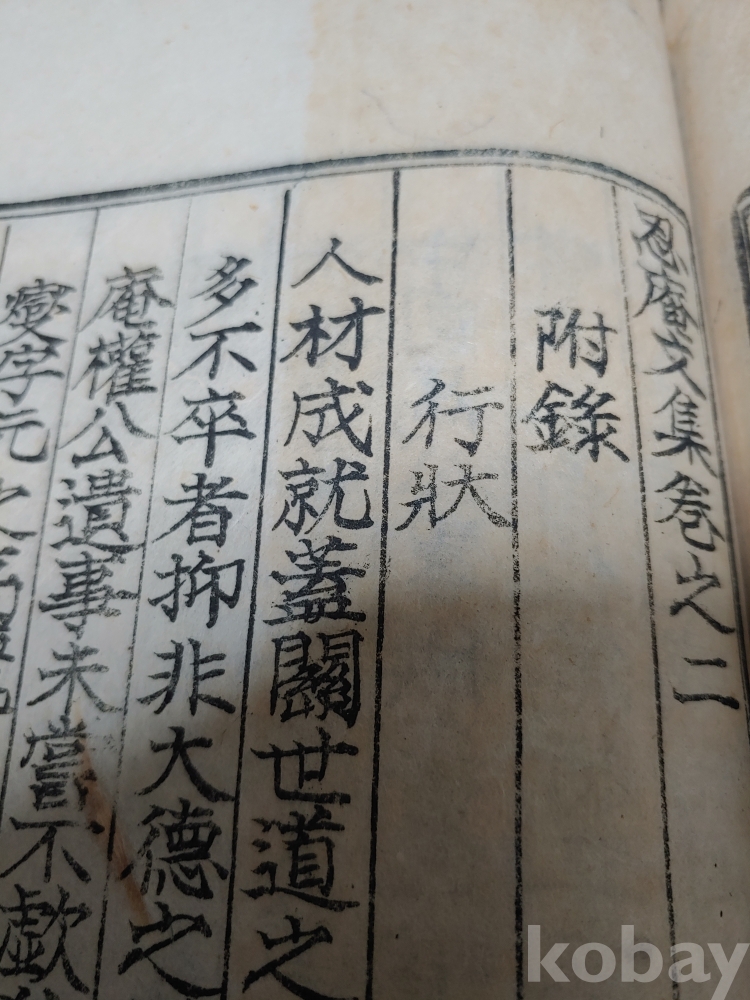 忍庵文集卷之二
附錄
行狀
人材成就蓋關世道之
多不卒者抑非大德之
庵權公遺事未嘗不歔
燮字元
kobay